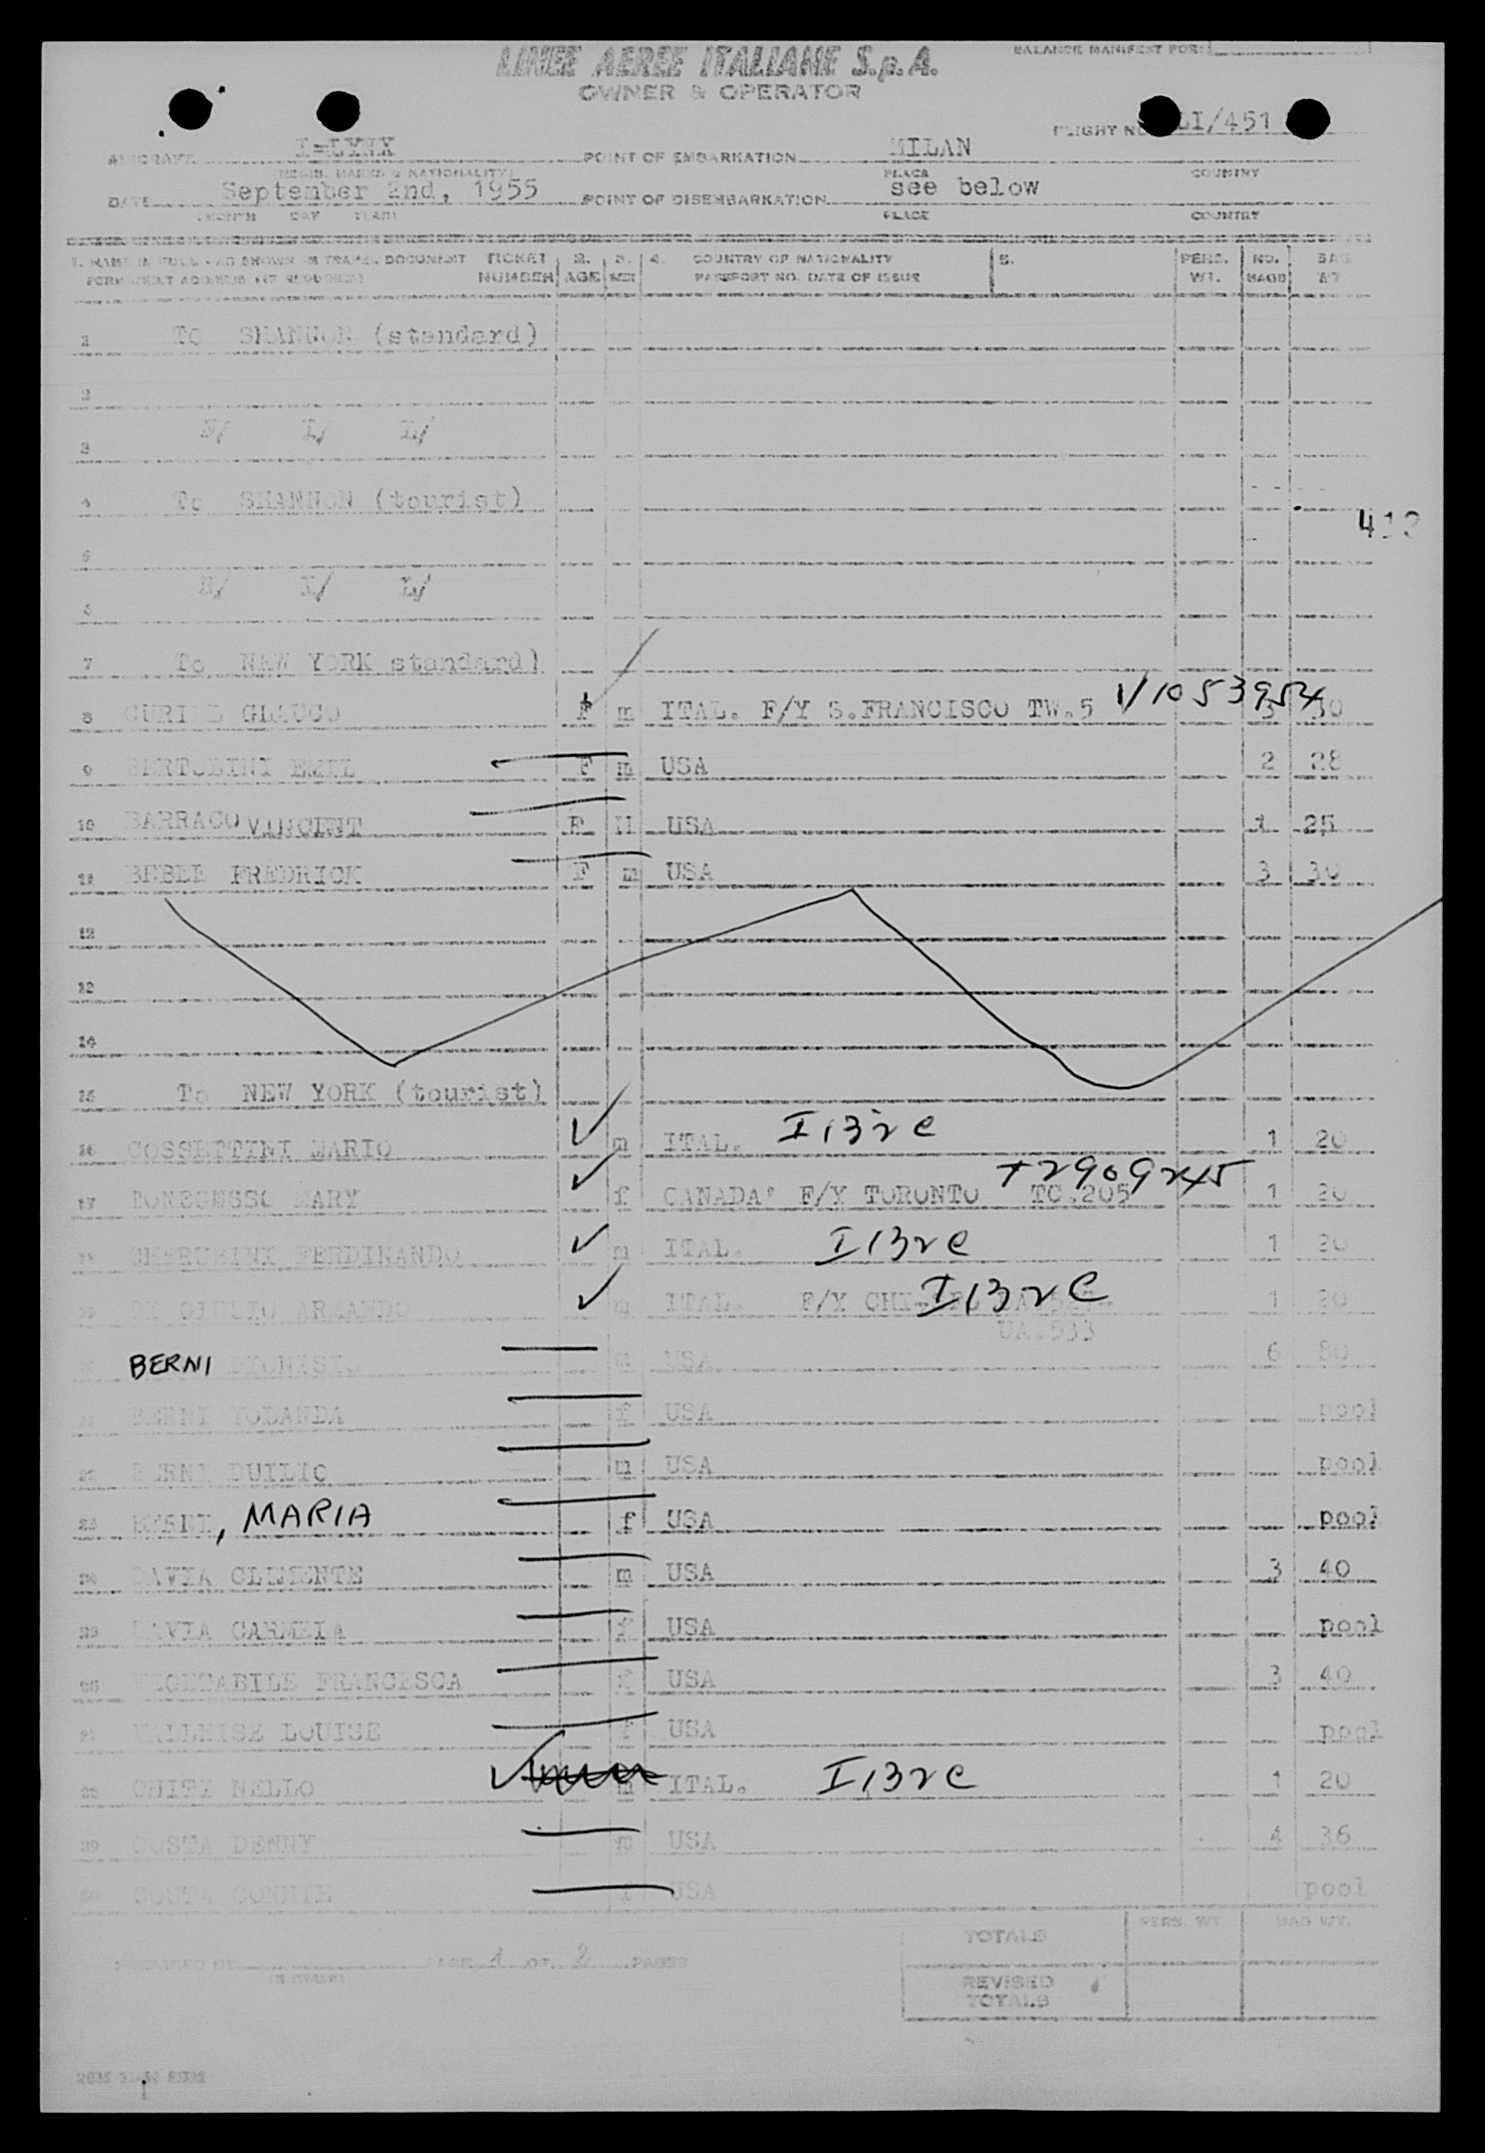 BALANCE MANIFEST FOR:
LINEE AEREE ITALIANE S.p.A.
OWNER & OPERATOR
FLIGHT NO. LI/451
AIRCRAFT I-LYNX POINT OF EMBARKATION MILAN
(REGIS. MARKS & NATIONALITY) PLACE COUNTRY
DATE September 2nd, 1955 POINT OF DISEMBARKATION see below
(MONTH DAY YEAR) PLACE COUNTRY
1. NAME IN FULL - AS SHOWN IN TRAVEL DOCUMENT TICKET 2. 3. 4. COUNTRY OF NATIONALITY 5. PERS. NO. BAG
PERMANENT ADDRESS (IF REQUIRED) NUMBER AGE SEX PASSPORT NO. DATE OF ISSUE WT. BAGS WT
1 To SHANNON (standard)
2
3 N/ I/ L/
4 To SHANNON (tourist)
412
5
6 N/ I/ L/
7 To NEW YORK standard)
8 CURIEL GLAUCO F m ITAL. F/Y S.FRANCISCO TW.5 V1053954 3 30
9 BERTOLINI EMIL F m USA 2 28
10 BARRACO VINCENT F M USA 1 25
11 BEBEE FREDRICK F m USA 3 30
12
13
14
15 To NEW YORK (tourist)
16 COSSETTINI MARIO m ITAL. I132C 1 20
17 MARY f CANADA F/Y TORONTO TC.205 T2909245 1 20
18 CHERUBINI FERDINANDO m ITAL. I132C 1 20
19 DE GIULIO ARMANDO m ITAL. F/Y I132C 1 20
UA.533
BERNI m USA 6 80
21 BERNI YOLANDA f USA pool
22 BERNI DUILIO m USA pool
23 BERNI, MARIA f USA pool
24 DAVIA CLEMENTE m USA 3 40
25 DAVIA CARMELA f USA pool
26 FRANCESCA f USA 3 40
27 LOUISE f USA pool
28 NELLO m ITAL. I132C 1 20
29 COSTA DENNY m USA 4 36
30 COSTA f USA pool
PREPARED BY PAGE 1 OF 2 PAGES
TOTALS PERS. WT BAG WT.
REVISED
TOTALS